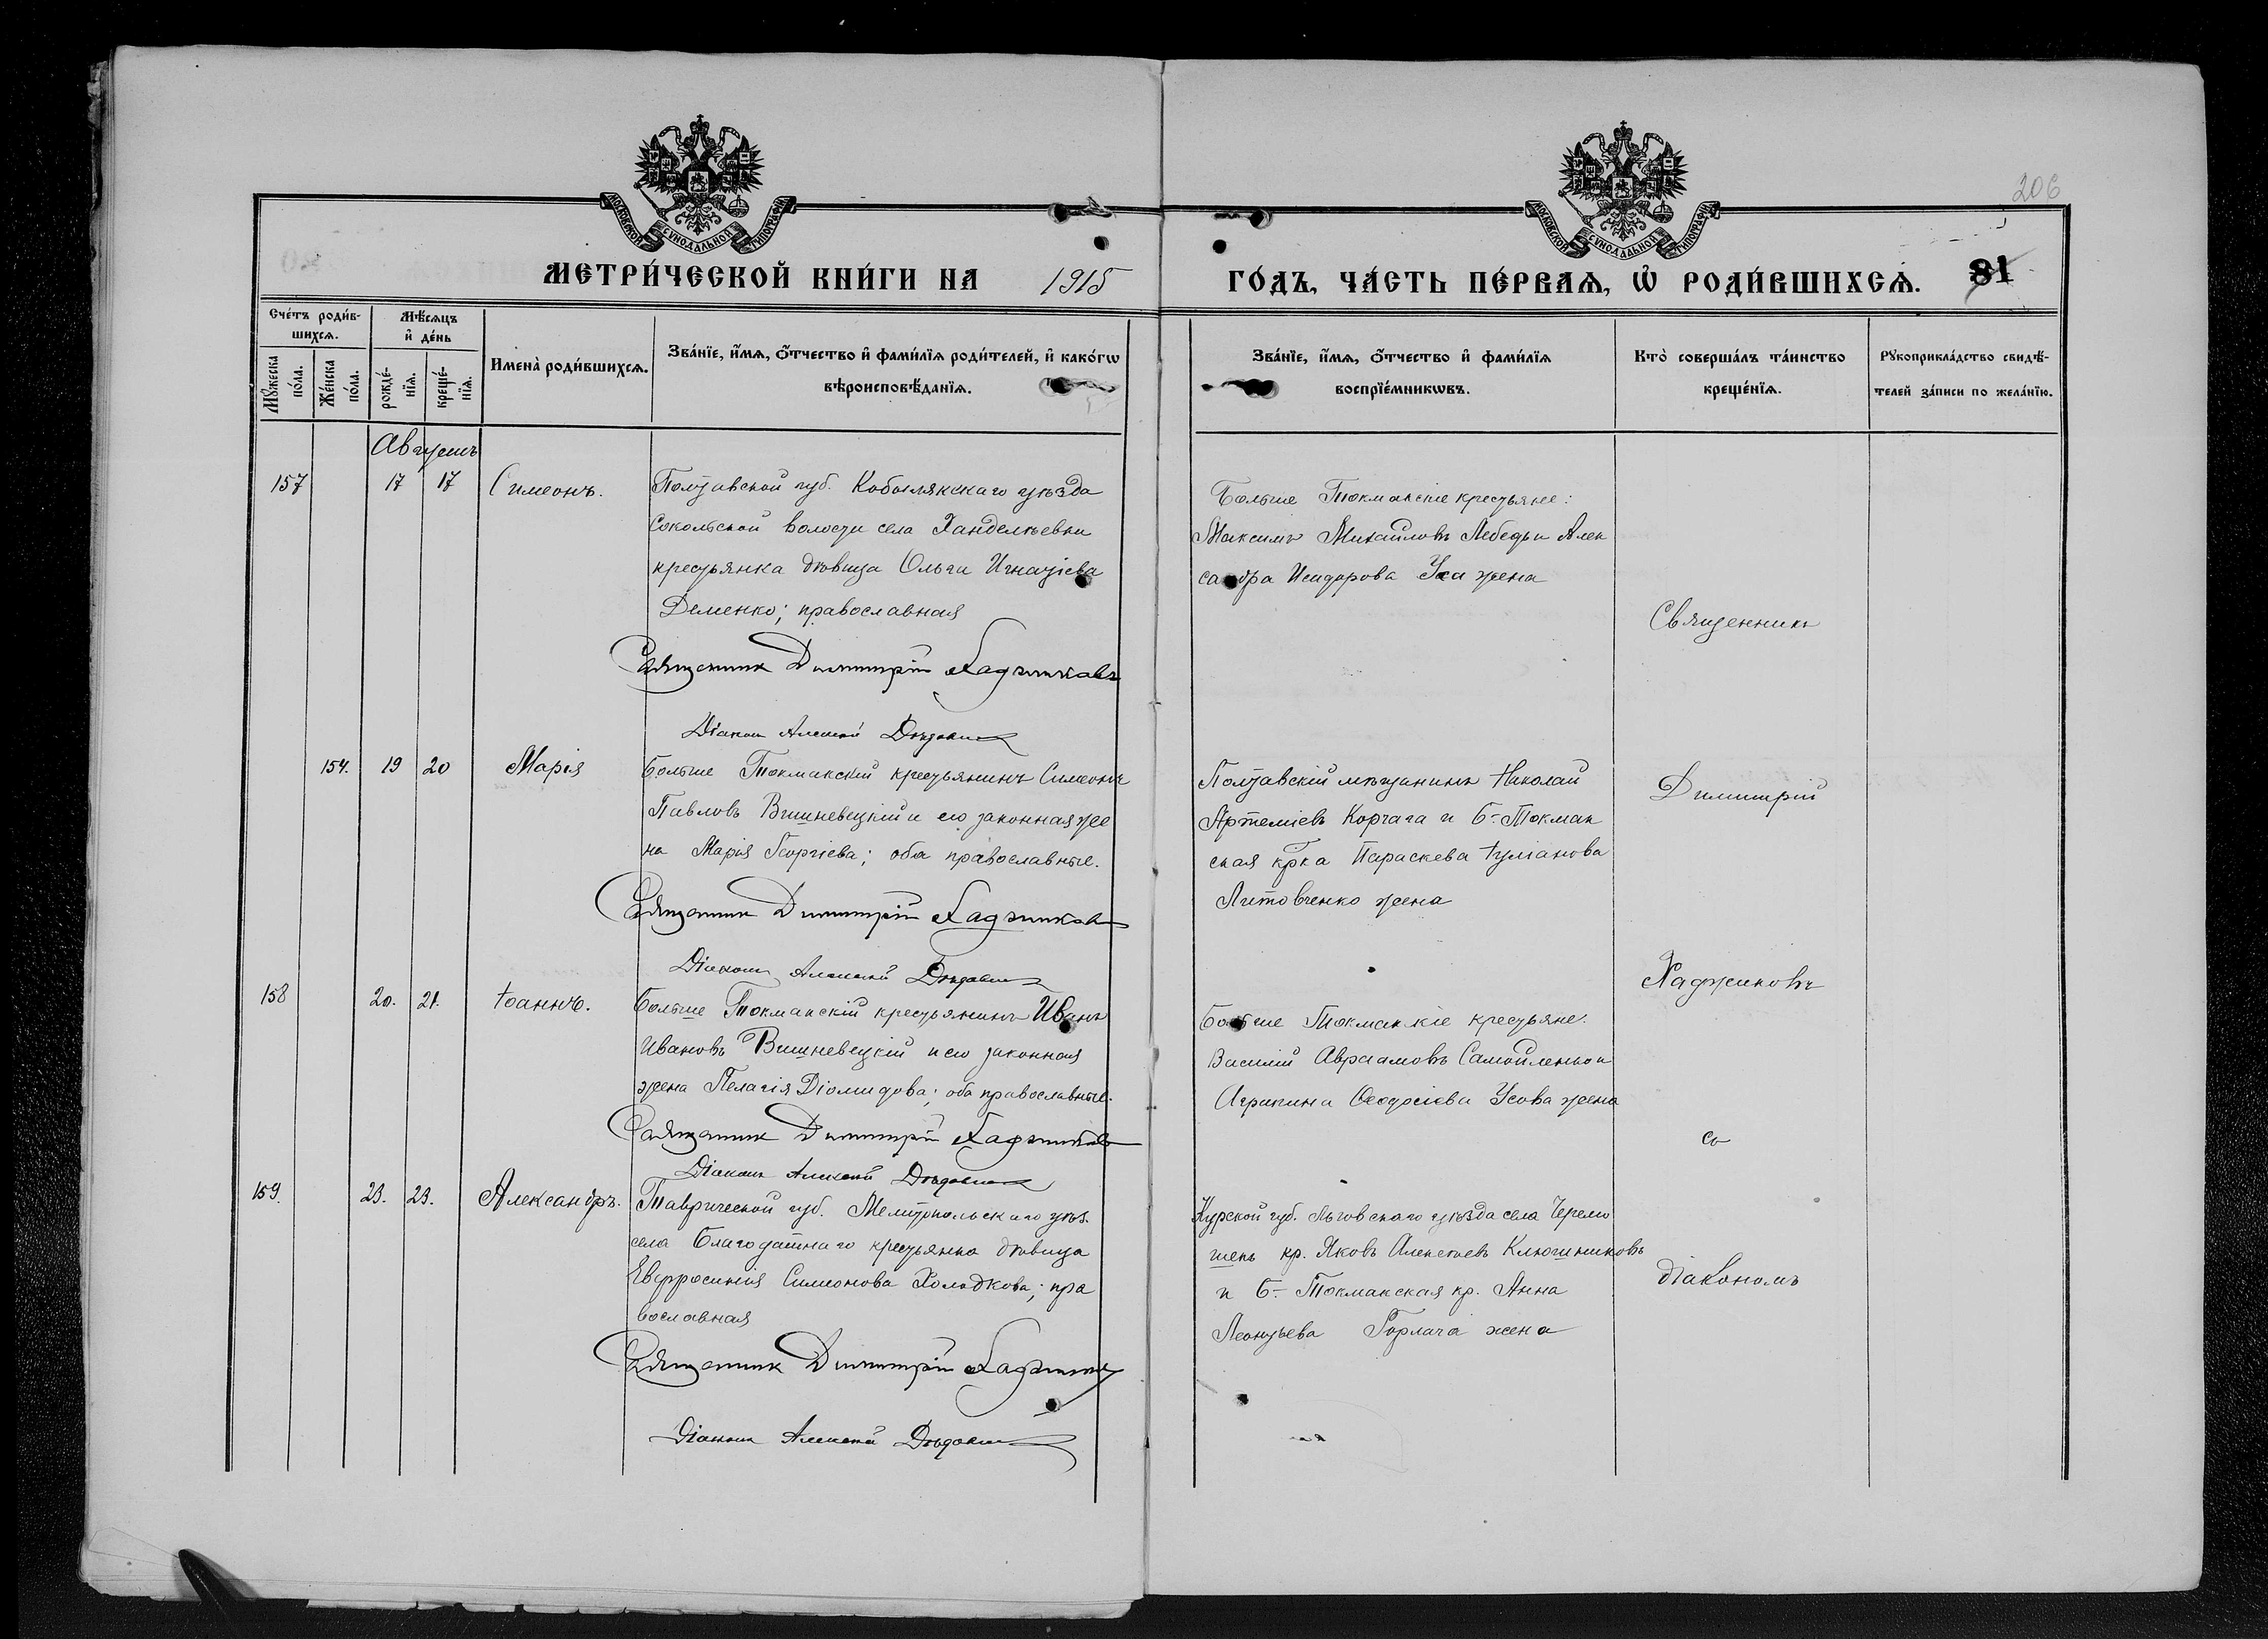 206
МОСКОВСКОЙ СѴНОДАЛЬНОЙ ТИПОГРАФІИ
МОСКОВСКОЙ СѴНОДАЛЬНОЙ ТИПОГРАФІИ
МЕТРИ́ЧЕСКОЙ КНИ́ГИ НА 1915 ГО́ДЪ, ЧА́СТЬ ПЕ́РВАѦ, Ѡ҆ РОДИ́ВШИХСѦ. 81
Сче́тъ роди́в-
шихсѧ.
Мѣ́сѧцъ
и҆ де́нь
Мꙋ́жеска
по́ла.
Же́нска
по́ла.
рожде́-
нїѧ.
креще́-
нїѧ.
И҆мена̀ роди́вшихсѧ.
Зва́нїе, и҆́мѧ, ѻ҆́тчество и҆ фамѝлїѧ роди́телей, и҆ како́гѡ
вѣроисповѣ́данїѧ.
Зва́нїе, и҆́мѧ, ѻ҆́тчество и҆ фами́лїѧ
воспрїе́мникѡвъ.
Кто̀ соверша́лъ та́инство
креще́нїѧ.
Рꙋкоприкла́дство свидѣ́-
телей за́писи по жела́нїю.
Августъ
157 17 17 Симеонъ.
Полтавской губ. Кобылякскаго уѣзда
Сокольской волости села Ханделѣевки
крестьянка дѣвица Ольга Игнатіева
Деменко; православная
Священникъ Димитрій Хаджиновъ
Діаконъ Алексѣй
Больше Токмакскіе крестьяне:
Максимъ Михайловъ Лебедь и Алек
сандра Исидорова Уса жена
154. 19 20 Марія
Больше Токмакскій крестьянинъ Симеонъ
Павловъ Вишневецкій и его законная же
на Марія Георгіева; оба православные.
Священникъ Димитрій Хаджиновъ
Діаконъ Алексѣй
Полтавскій мѣщанинъ Николай
Артеміевъ Корчага и Б-Токмак
ская крка Параскева Іуліанова
Литовченко жена
158 20. 21. Іоаннъ.
Больше Токмакскій крестьянинъ Иванъ
Ивановъ Вишневецкій и его законная
жена Пелагія Діомидова; оба православные.
Священникъ Димитрій Хаджиновъ
Діаконъ Алексѣй
Больше Токмакскіе крестьяне.
Василій Авраамовъ Самойленко и
Агрипина Ѳеодосіева Усова жена
159. 23. 23. Александръ.
Таврической губ. Мелитопольскаго уѣз.
села Благодатнаго крестьянка дѣвица
Евфросинія Симеонова Холодкова; пра
вославная
Священникъ Димитрій Хаджиновъ
Діаконъ Алексѣй
Курской губ. Льговскаго уѣзда села Черемо
шекъ кр. Яковъ Алексѣевъ Ключниковъ
и Б- Токмакская кр. Анна
Леонтьева Горлача жена
Священникъ
Димитрій
Хаджиновъ
съ
діакономъ